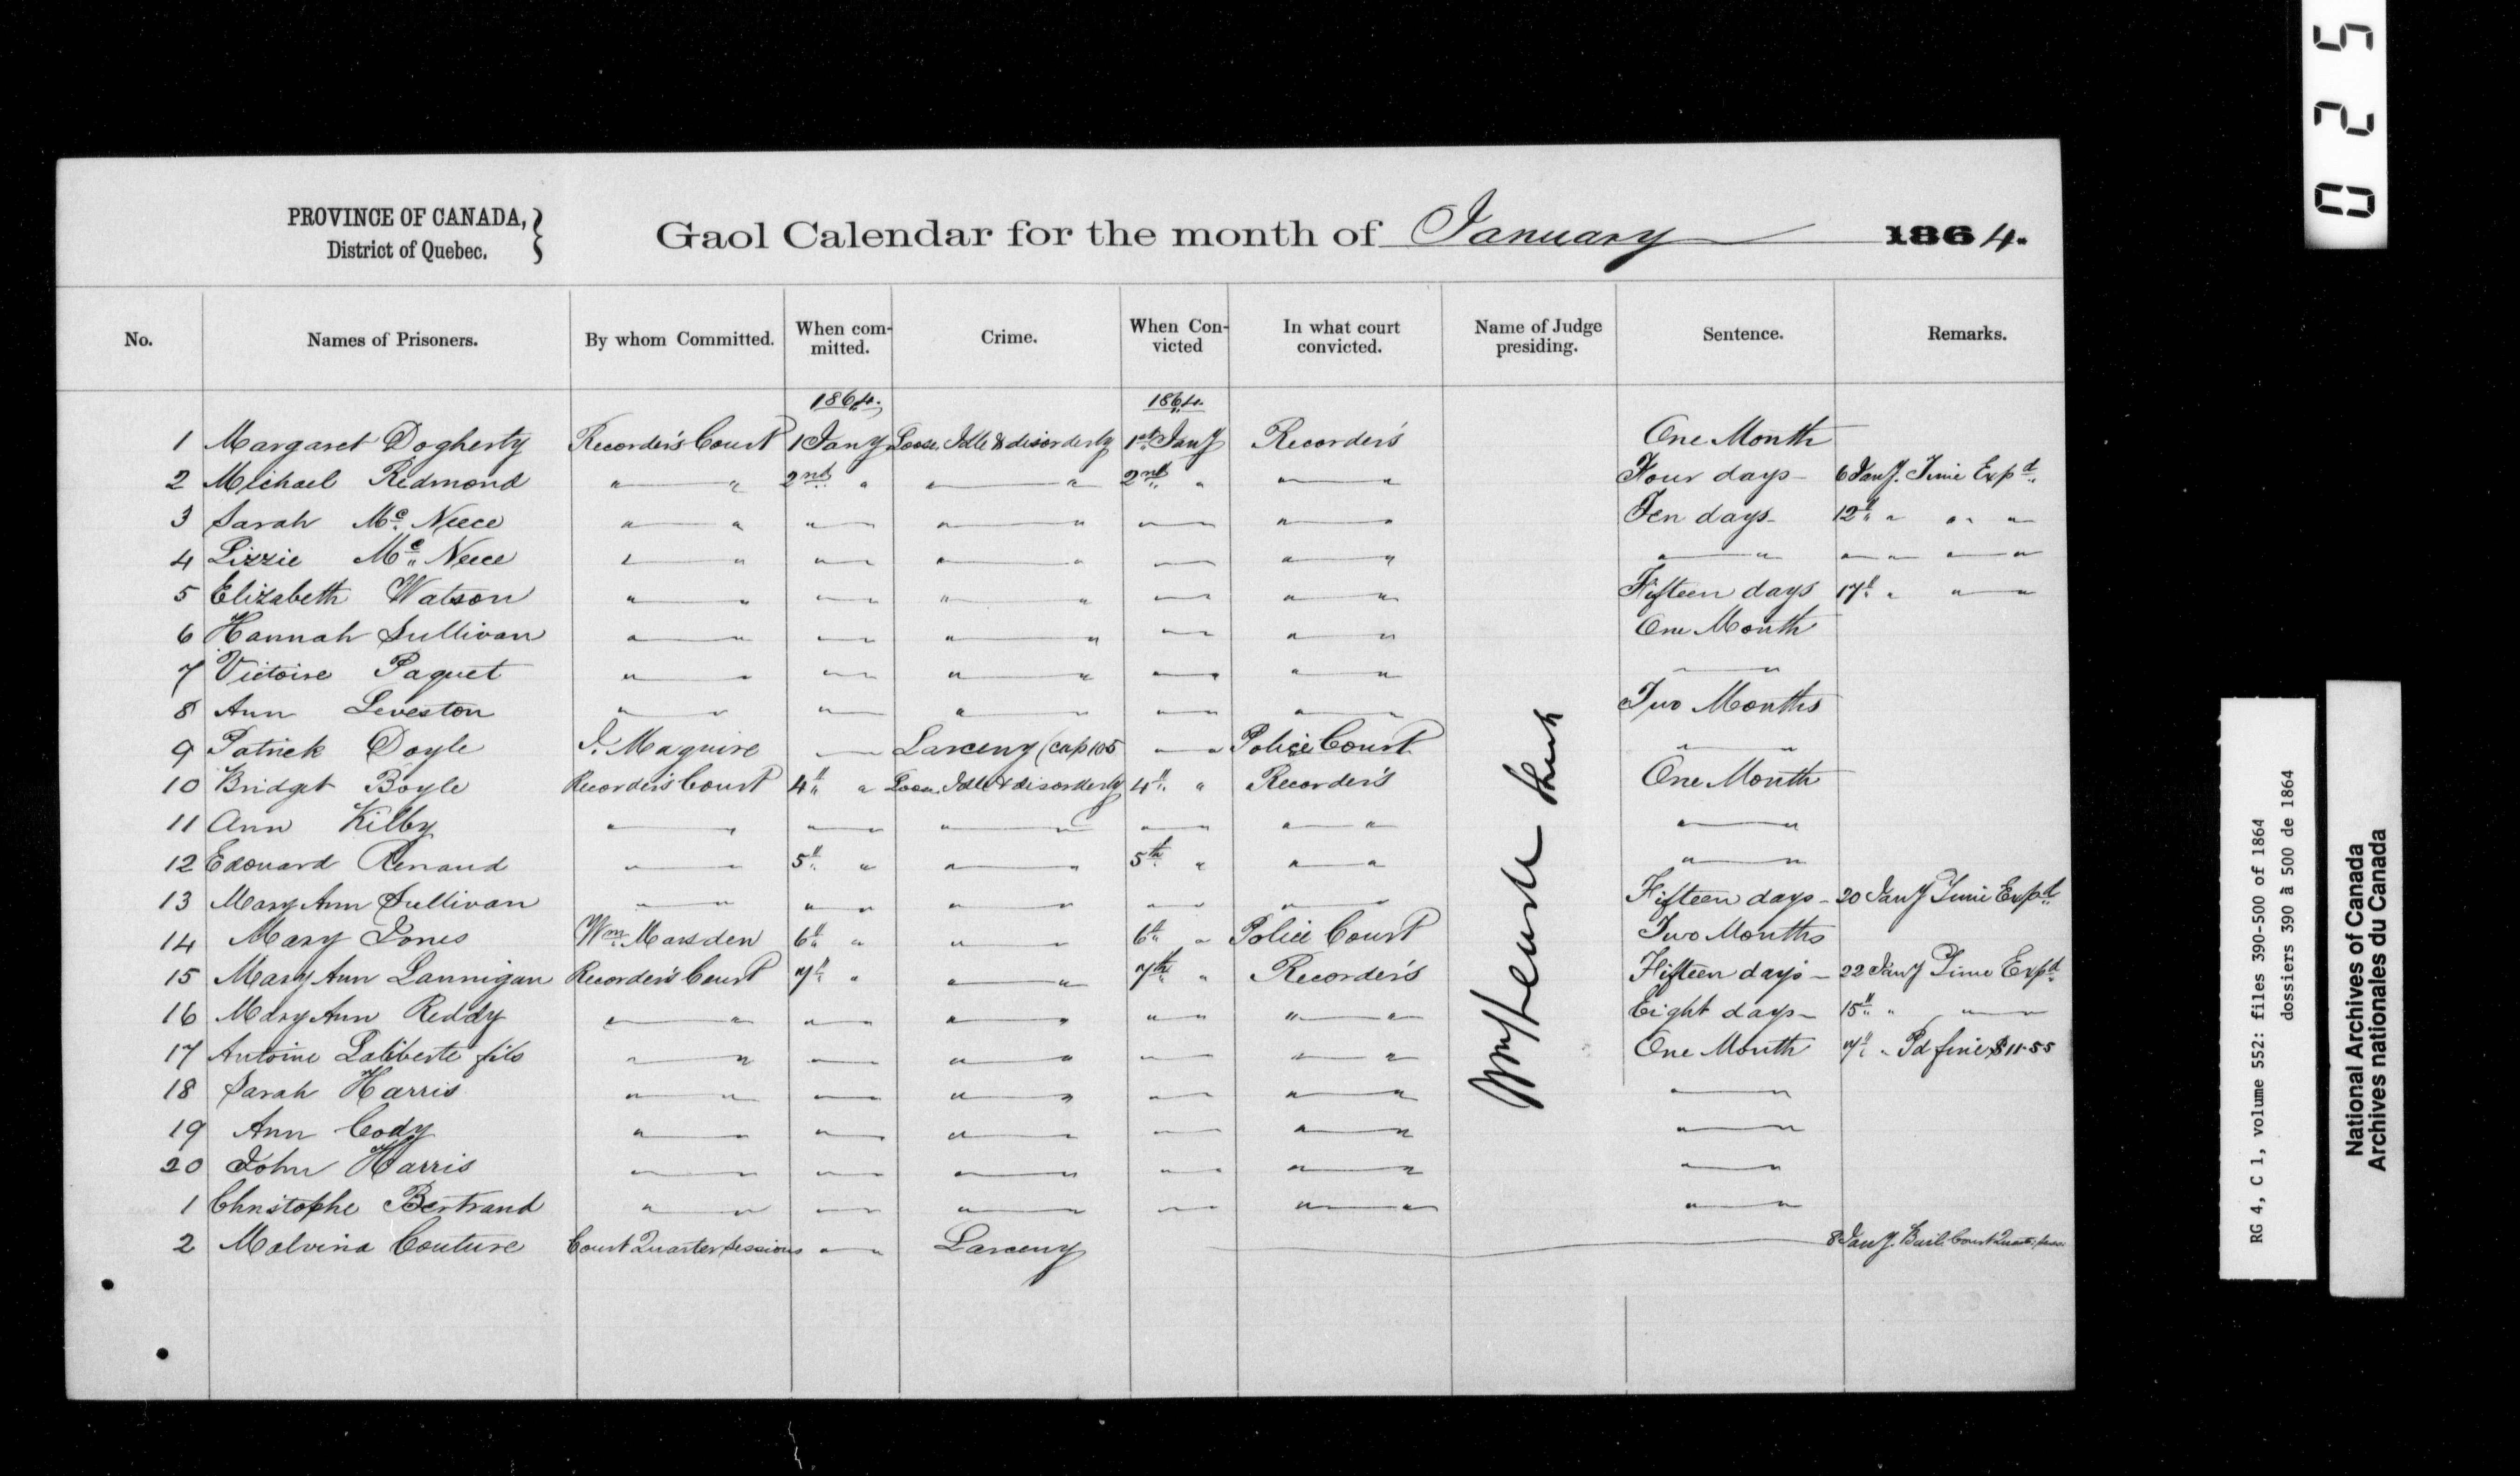 PROVINCE OF CANADA,
District of Quebec.
Gaol Calendar for the month of January 1864.
No. Names of Prisoners. By whom Committed. When com-mitted. Crime. When Con-victed In what court convicted. Name of Judge presiding. Sentence. Remarks.
1864. 1864.
1 Margaret Dogherty Recorder's Court 1 Jany Loose, Idle & disorderly 1st Jany Recorder's One Month
2 Michael Redmond " " 2nd " " " 2nd " " " Four days 6 Jany. Time Expd
3 Sarah Mc Neece " " " " " " " " " Ten days 12th " " "
4 Lizzie Mc Neece " " " " " " " " " " " " " " "
5 Elizabeth Watson " " " " " " " " " " Fifteen days 17th " " "
6 Hannah Sullivan " " " " " " " " " " One Month
7 Victoire Paquet " " " " " " " " " " " "
8 Ann Leveston " " " " " " " " " " Two Months
9 Patrick Doyle J. Maguire " " Larceny (cap 105 " " Police Court " "
10 Bridget Boyle Recorder's Court 4th " Loose, Idle & disorderly 4th " Recorder's One Month
11 Ann Kilby " " " " " " " " " " " "
12 Edouard Renaud " " 5th " " " 5th " " " " "
13 Mary Ann Sullivan " " " " " " " " " " Fifteen days 20 Jany Time Expd
14 Mary Jones Wm Marsden 6th " " " 6th " Police Court Two Months
15 Mary Ann Lannigan Recorder's Court 7th " " " 7th " Recorder's Fifteen days 22 Jany Time Expd
16 Mary Ann Reddy " " " " " " " " " " Eight days 15th " " "
17 Antoine Laliberte fils " " " " " " " " " " One Month 7th " Pd fine $11-55
18 Sarah Harris " " " " " " " " " " " "
19 Ann Cody " " " " " " " " " " " "
20 John Harris " " " " " " " " " " " "
1 Christophe Bertrand " " " " " " " " " " " "
2 Malvina Couture Court Quarter Sessions " " Larceny 8 Jany. Bail. Court Quarter
025
RG 4, C 1, volume 552: files 390-500 of 1864
dossiers 390 à 500 de 1864
National Archives of Canada
Archives nationales du Canada